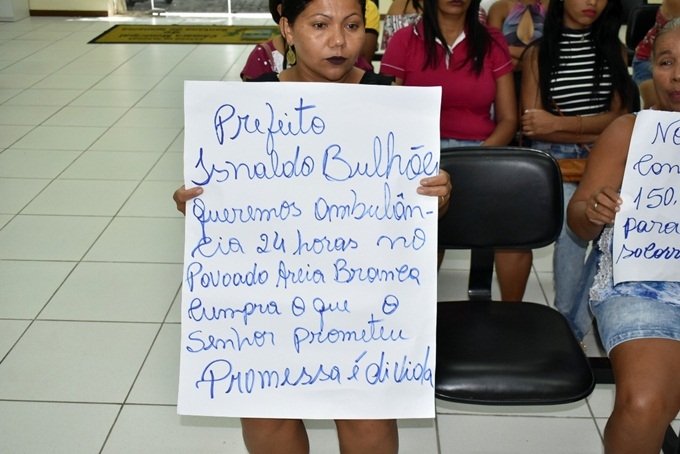 Prefeito
Isnaldo Bulhões
queremos ambulân-
cia 24 horas no
Povoado Areia Branca
Cumpra o que o
Senhor prometeu
Promessa é divida
150.
para
socorr